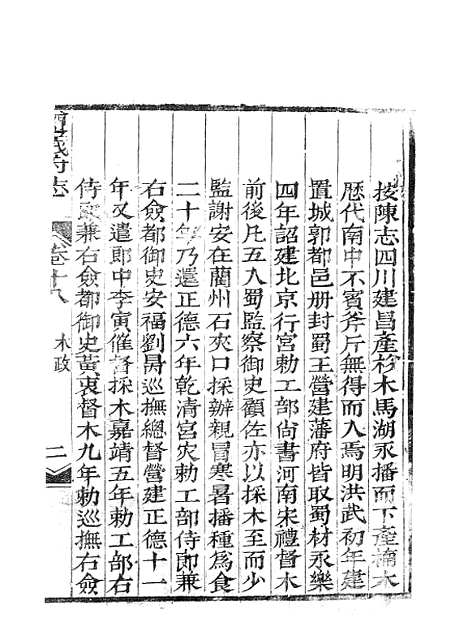 按陳志四川建昌產杉木馬湖永播而下產楠木
歷代南中不賓斧斤無得而入焉明洪武初年建
置城郭都邑册封蜀王營建藩府皆取蜀材永樂
四年詔建北京行宮勅工部尚書河南宋禮督木
前後凡五入蜀監察御史顧佐亦以採木至而少
監謝安在藺州石夾口採辦親冒寒暑播種爲食
二十年乃還正德六年乾清宮灾勅工部侍郎兼
右僉都御史安福劉昺巡撫總督營建正德十一
年又遣郎中李寅催督採木嘉靖五年勅工部右
侍郎兼右僉都御史黃衷督木九年勅巡撫右僉
義府志 卷十八 木政 二